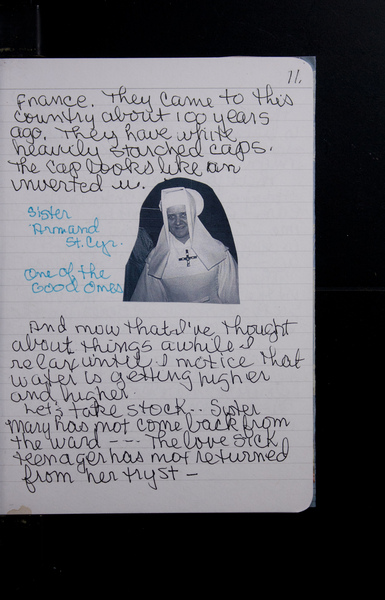 11.
France. They came to this
country about 100 years
ago. They have white
heavily starched caps.
The cap looks like an
inverted u.
Sister
Armand
St. Cyr.
One of the
Good Ones
And now that I've thought
about things awhile I
relax until I notice that
water is getting higher
and higher.
Let's take stock-- Sister
Mary has not come back from
the ward --- The love sick
teenager has not returned
from her tryst —